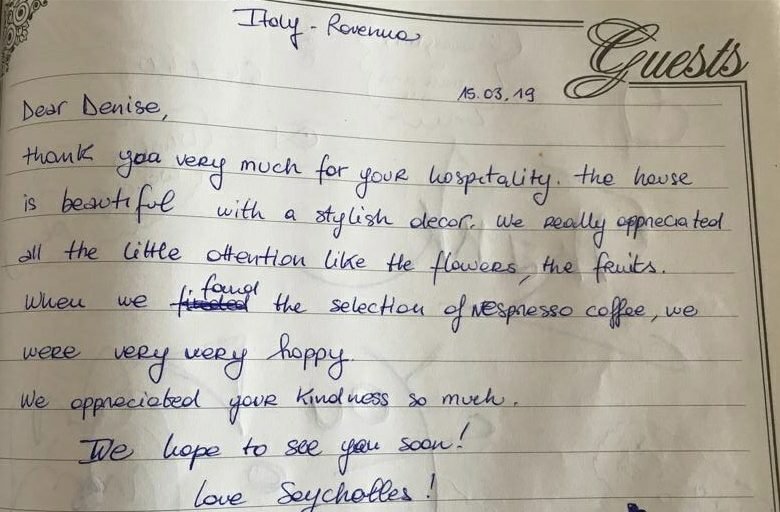 Italy - Ravenna
Guests
15.03.19
Dear Denise,
thank you very much for your hospitality. the house
is beautiful with a stylish decor. We really appreciated
all the little attention like the flowers, the fruits.
When we found the selection of Nespresso coffee, we
were very very happy.
We appreciated your kindness so much.
We hope to see you soon!
love Seychelles!